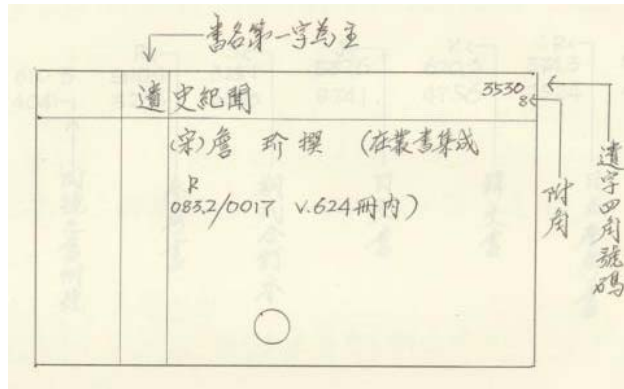 書名第一字為主
遺史紀聞
3530
8
(宋)詹 玠 撰 (在叢書集成
R
083.2/0017 v.624冊內)
附角
遺字四角號碼